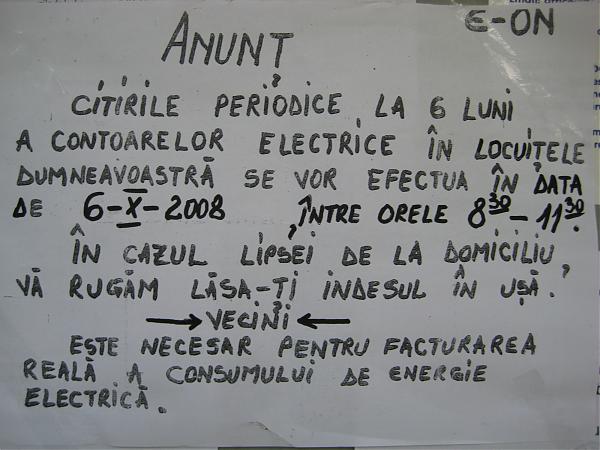 E-ON
ANUNȚ
CITIRILE PERIODICE, LA 6 LUNI
A CONTOARELOR ELECTRICE ÎN LOCUIȚELE
DUMNEAVOASTRĂ SE VOR EFECTUA ÎN DATA
DE 6-X-2008, ÎNTRE ORELE 8³⁰-11³⁰.
ÎN CAZUL LIPSEI DE LA DOMICILIU,
VĂ RUGĂM LĂSA-ȚI INDESUL ÎN UȘĂ.
→ VECINI ←
ESTE NECESAR PENTRU FACTURAREA
REALĂ A CONSUMULUI DE ENERGIE
ELECTRICĂ.